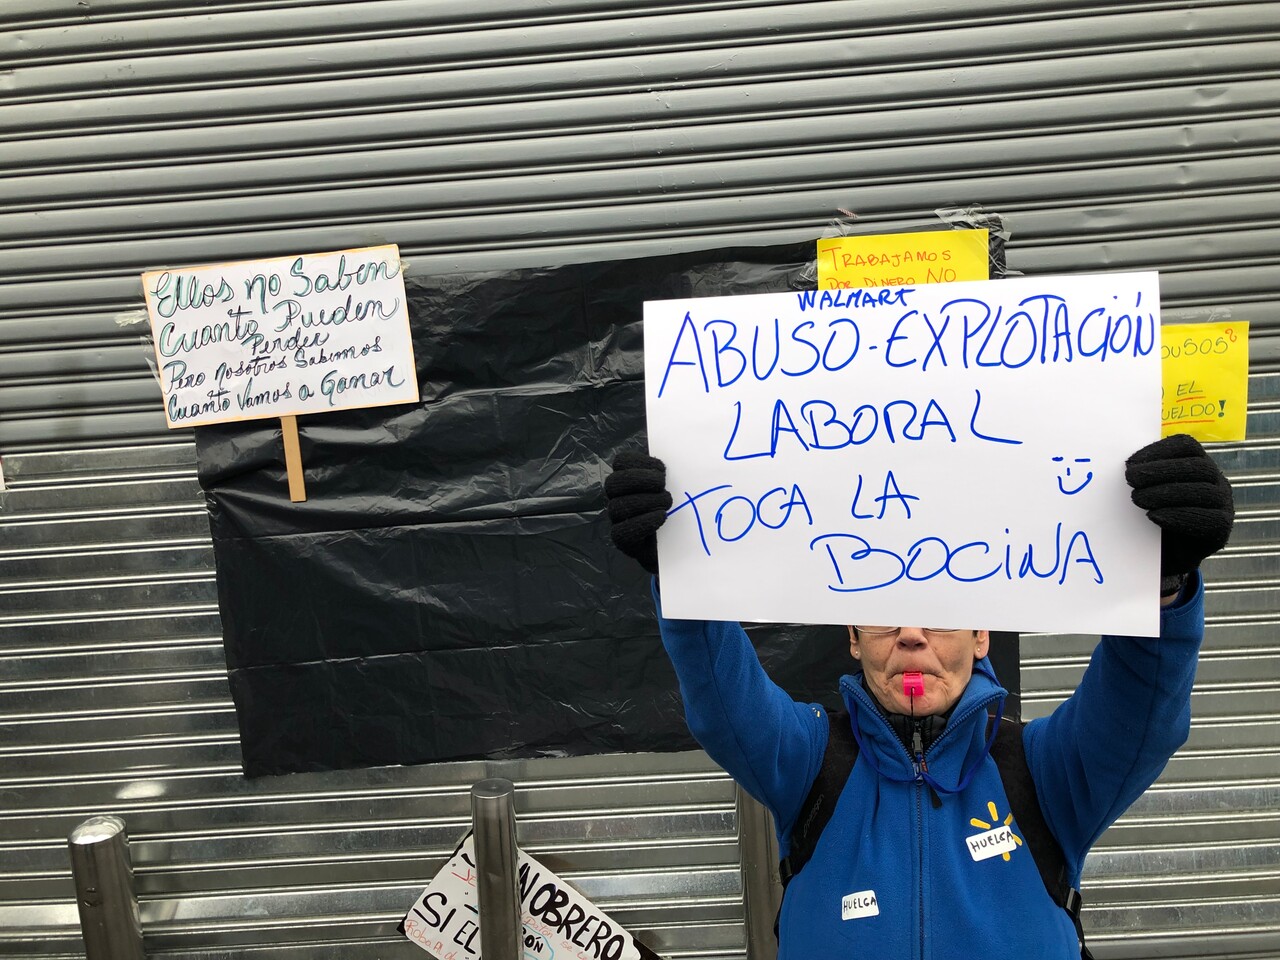 Ellos no Saben
Cuanto Pueden
Perder
Pero nosotros Sabemos
Cuanto Vamos a Ganar
TRABAJAMOS
POR DINERO NO
WALMART
ABUSO-EXPLOTACIÓN
LABORAL
TOCA LA
BOCINA
EL
HUELGA
HUELGA
OBRERO
SI EL